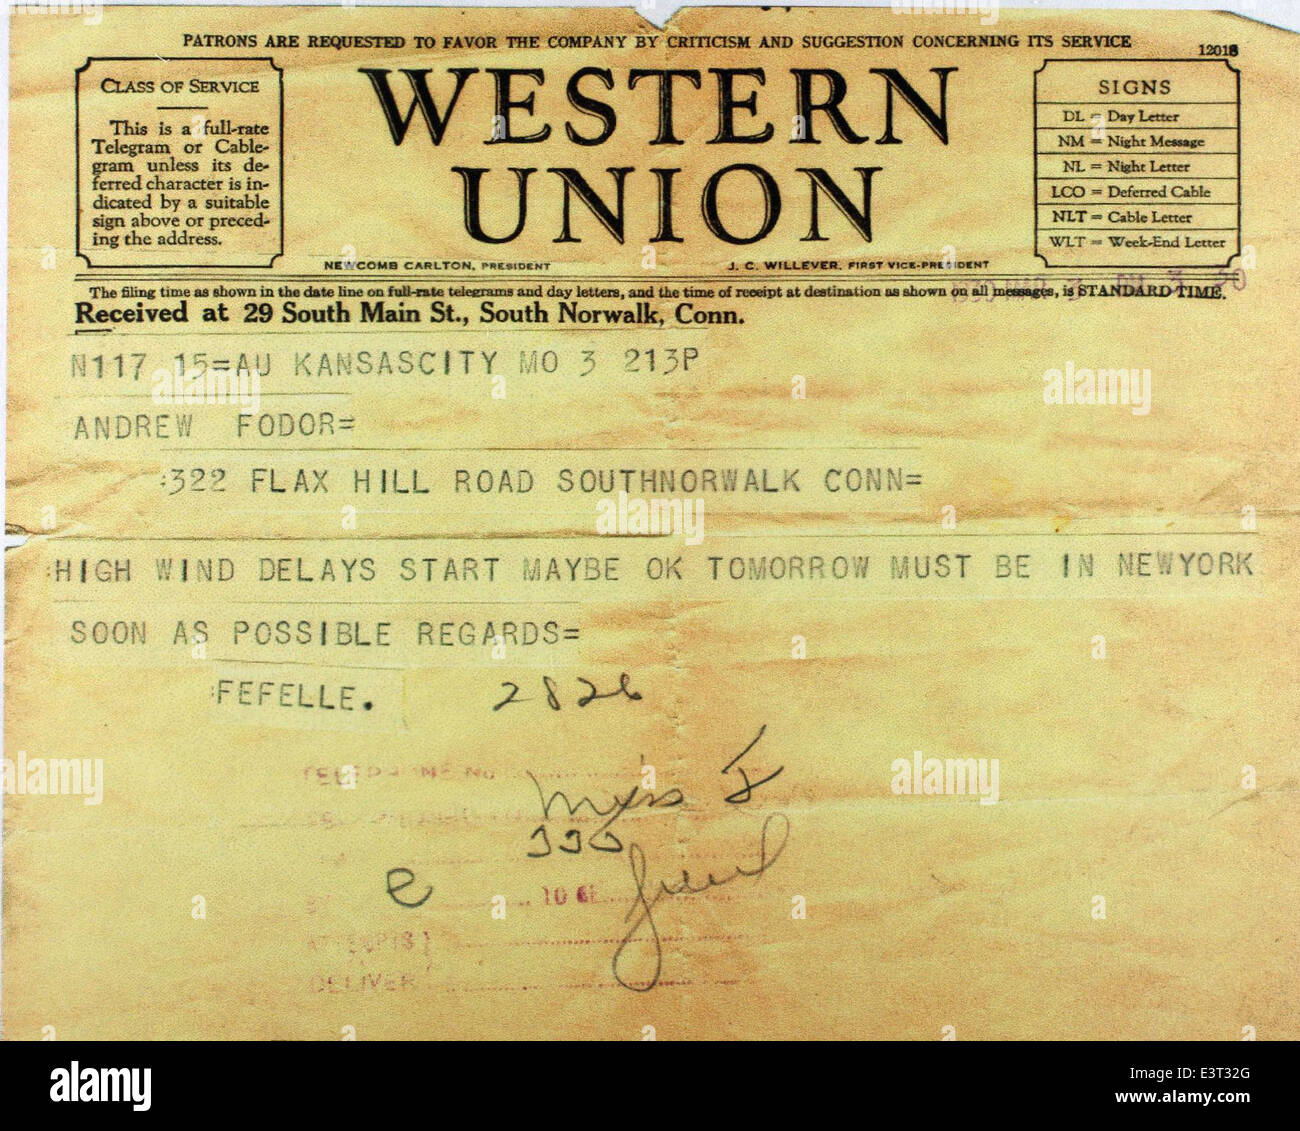 PATRONS ARE REQUESTED TO FAVOR THE COMPANY BY CRITICISM AND SUGGESTION CONCERNING ITS SERVICE
1201S
CLASS OF SERVICE
This is a full-rate
Telegram or Cable-
gram unless its de-
ferred character is in-
dicated by a suitable
sign above or preced-
ing the address.
WESTERN
UNION
NEWCOMB CARLTON, PRESIDENT
J. C. WILLEVER, FIRST VICE-PRESIDENT
SIGNS
DL = Day Letter
NM = Night Message
NL = Night Letter
LCO = Deferred Cable
NLT = Cable Letter
WLT = Week-End Letter
The filing time as shown in the date line on full-rate telegrams and day letters, and the time of receipt at destination as shown on all messages, is STANDARD TIME.
Received at 29 South Main St., South Norwalk, Conn.
N117 15=AU KANSASCITY MO 3 213P
ANDREW FODOR=
:322 FLAX HILL ROAD SOUTHNORWALK CONN=
:HIGH WIND DELAYS START MAYBE OK TOMORROW MUST BE IN NEWYORK
SOON AS POSSIBLE REGARDS=
:FEFELLE.
2826
Miss F
330
e
DELIVER
alamy
Image ID: E3T32G
www.alamy.com